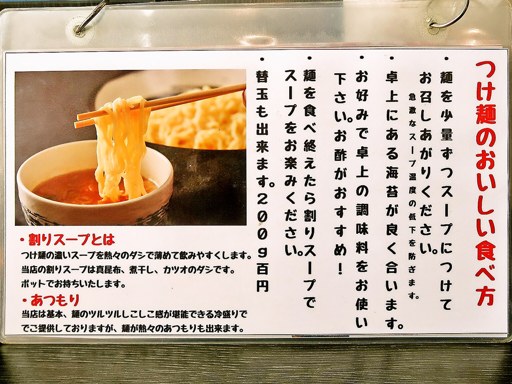 つけ麺のおいしい食べ方
・麺を少量ずつスープにつけて
お召しあがりください。
急激なスープ温度の低下を防ぎます。
・卓上にある海苔が良く合います。
・お好みで卓上の調味料をお使い
下さい。お酢がおすすめ！
・麺を食べ終えたら割りスープで
スープをお楽みください。
・替玉も出来ます。200g百円
・割りスープとは
つけ麺の濃いスープを熱々のダシで薄めて飲みやすくします。
当店の割りスープは真昆布、煮干し、カツオのダシです。
ポットでお持ちいたします。
・あつもり
当店は基本、麺のツルツルしこしこ感が堪能できる冷盛りで
でご提供しておりますが、麺が熱々のあつもりも出来ます。